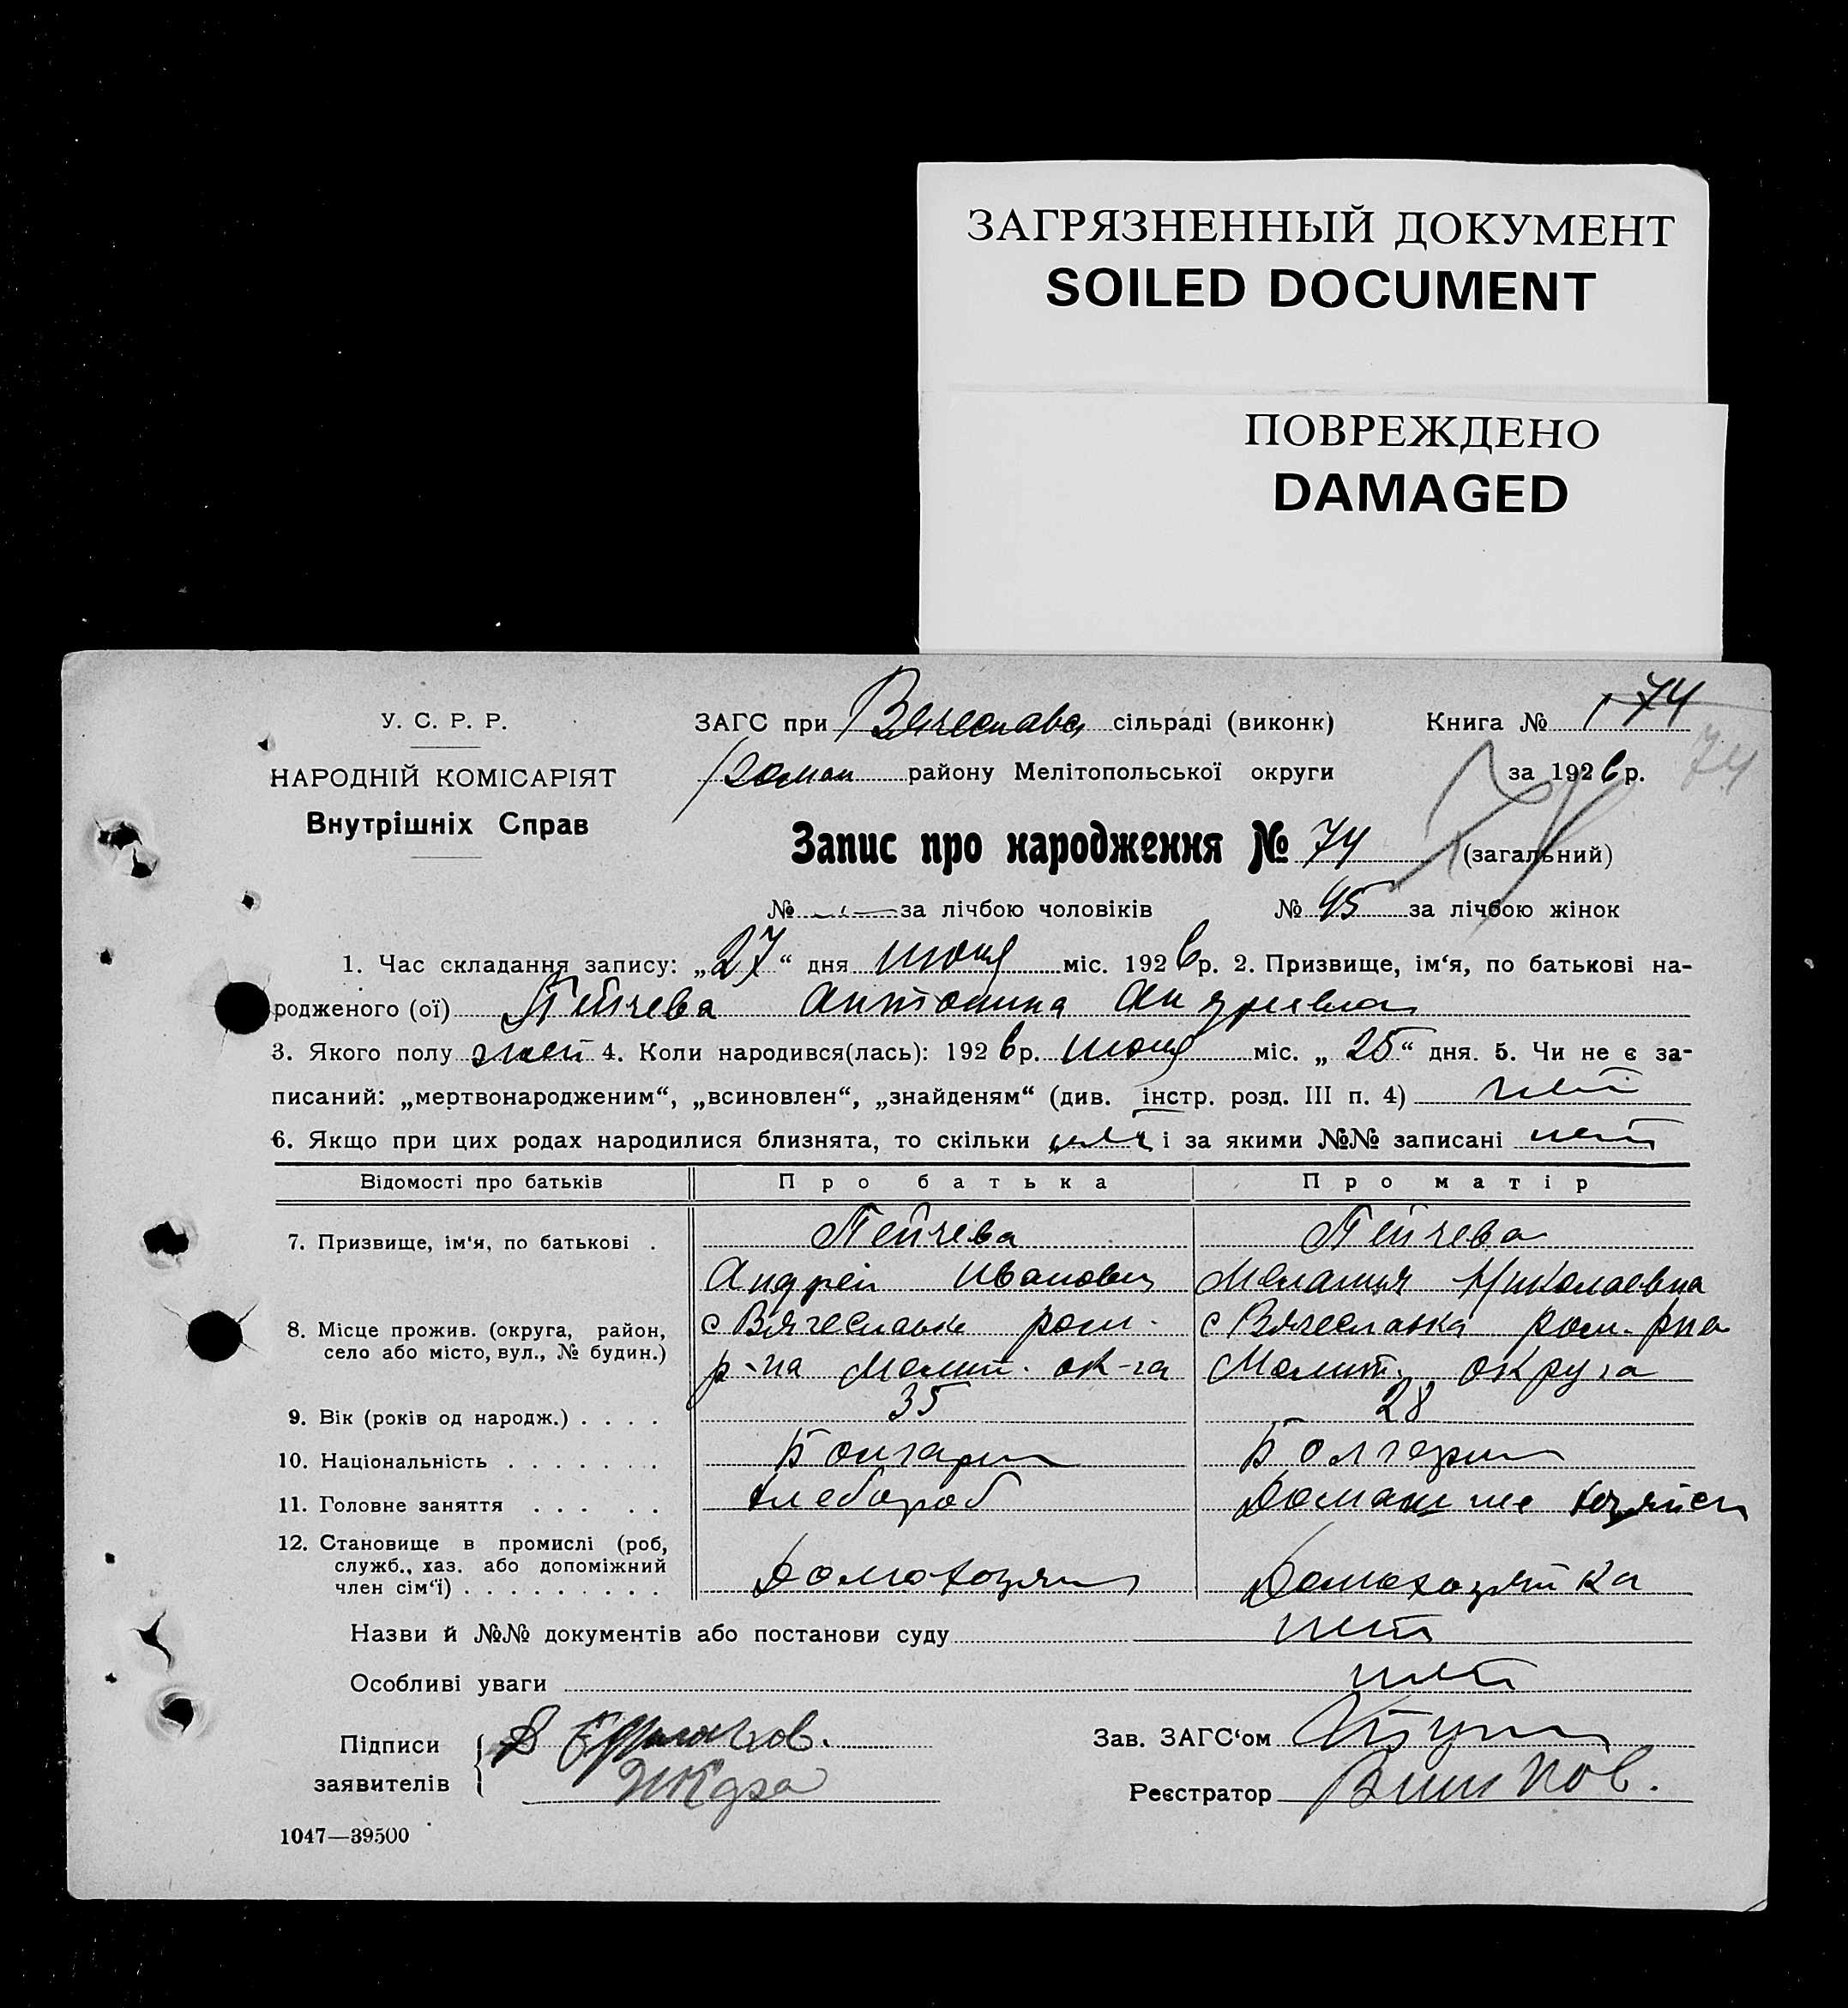 ЗАГРЯЗНЕННЫЙ ДОКУМЕНТ
SOILED DOCUMENT
ПОВРЕЖДЕНО
DAMAGED
У. С. Р. Р.
НАРОДНІЙ КОМІСАРІЯТ
Внутрішніх Справ
ЗАГС при сільраді (виконк)
Книга № 1 74
74
району Мелітопольської округи
за 1926 р.
Запис про народження № 74 (загальний)
№ — за лічбою чоловіків № 45 за лічбою жінок
1. Час складання запису: „27“ дня июня міс. 1926 р. 2. Призвище, ім‘я, по батькові на-
родженого (ої) Пейчева Антонина Андреевна
3. Якого полу жен 4. Коли народився(лась): 1926 р. июня міс. „25“ дня. 5. Чи не є за-
писаний: „мертвонародженим“, „всиновлен“, „знайденям“ (див. інстр. розд. III п. 4) нет
6. Якщо при цих родах народилися близнята, то скільки нет і за якими №№ записані нет
Відомості про батьків Про батька Про матір
7. Призвище, ім‘я, по батькові . Пейчева Пейчева
Андрей Иванович Мелания Николаевна
8. Місце прожив. (округа, район, с Вячеславка ром. с Вячеславка ром. рна
село або місто, вул., № будин.) р-на Мелит. ок-га Мелит. округа
9. Вік (років од народж.) . . . . 35 28
10. Національність . . . . . . . Болгарин Болгарин
11. Головне заняття . . . . . Хлебороб Домашнее
12. Становище в промислі (роб,
служб., хаз. або допоміжний
член сім‘ї) . . . . . . . . . Домохозяин Домохозяйка
Назви й №№ документів або постанови суду нет
Особливі уваги нет
Підписи
заявителів
Зав. ЗАГС‘ом
Реєстратор
1047—39500